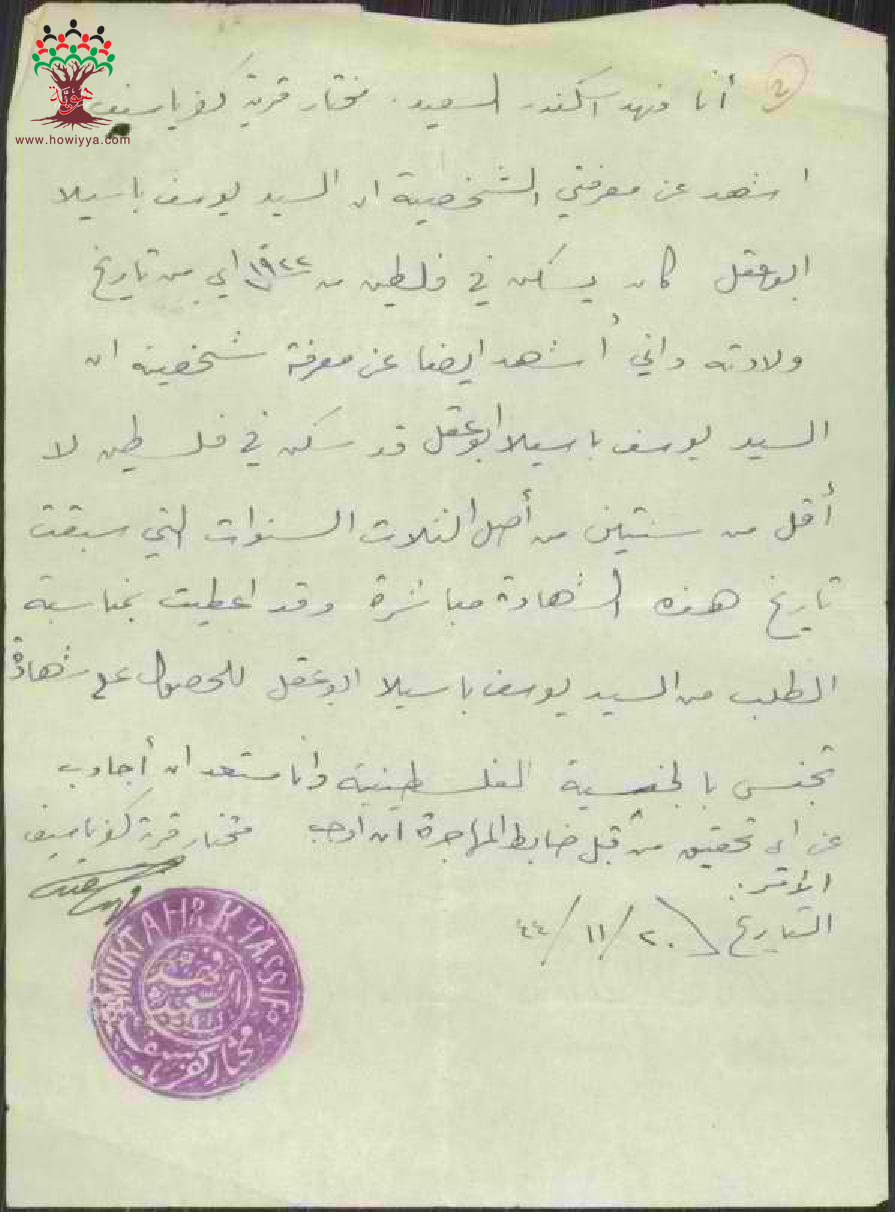 هوية
www.howiyya.com
(٢) أنا فهد اسكندر السعيد. مختار قرية كفر ياسيف
اشهد عن معرفتي الشخصية ان السيد يوسف باسيلا
ابو عقل كان يسكن في فلسطين من ١٩٢٢ اي من تاريخ
ولادته واني أشهد ايضا عن معرفة شخصية ان
السيد يوسف باسيلا ابو عقل قد سكن في فلسطين لا
أقل من سنتين من أصل الثلاث السنوات التي سبقت
تاريخ هذه الشهادة مباشرة وقد اعطيت بمناسبة
الطلب من السيد يوسف باسيلا ابو عقل للحصول على شهادة
تجنس بالجنسية الفلسطينية وانا مستعد ان أجاوب
عن اي تحقيق من قبل ضابط المهاجرة ان اوجب
مختار قرية كفر ياسيف
الأمر.
التاريخ ٢٠/١١/٤٤
MUKTAHR K. YASSIF
فهد
السعيد
مختار كفر ياسيف